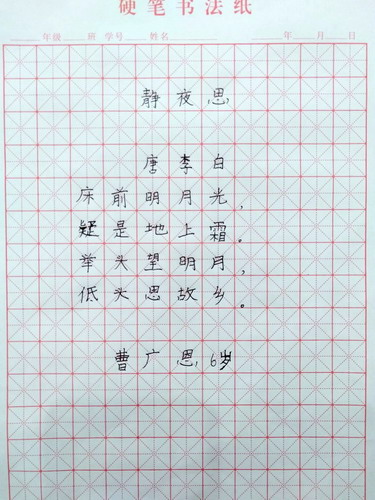 硬笔书法纸
年级 班 学号 姓名 年 月 日
静夜思
唐李白
床前明月光，
疑是地上霜。
举头望明月，
低头思故乡。
曹广恩 6岁